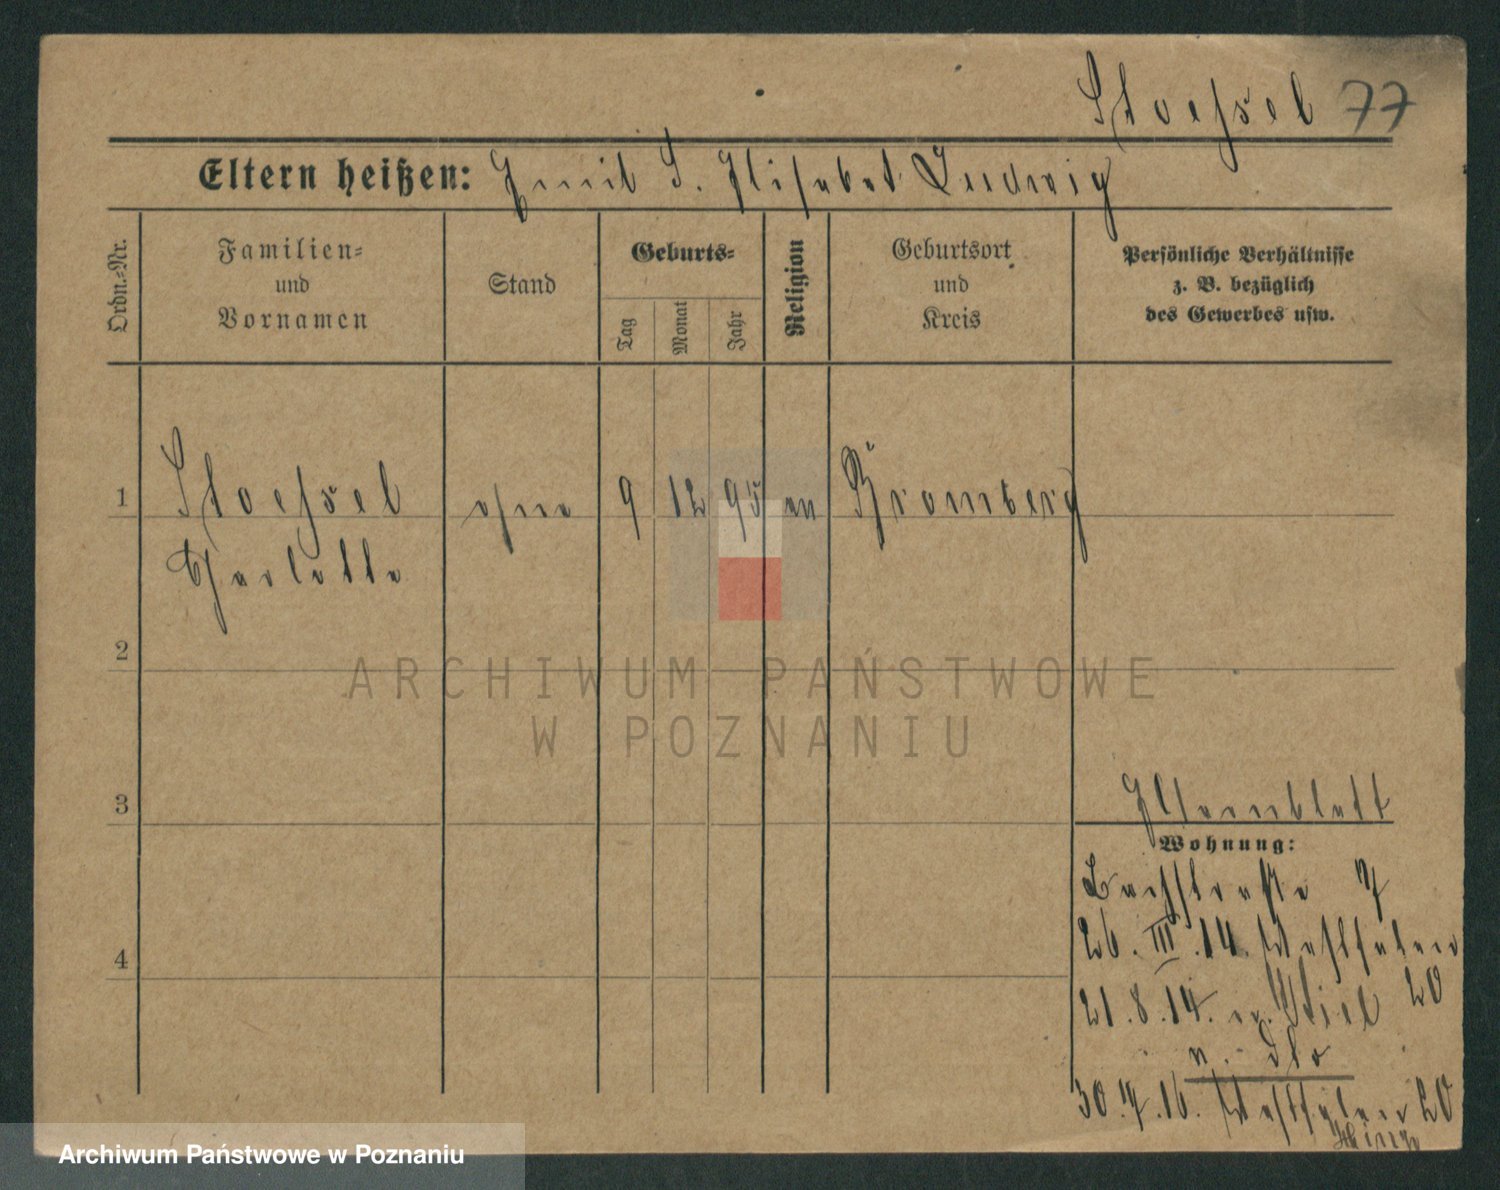 Stoessel 77
Eltern heißen: Emil S. Elisabet Ludwig
Ordn.=Nr.
Familien=
und
Vornamen
Stand
Geburts=
Tag
Monat
Jahr
Religion
Geburtsort
und
Kreis
Persönliche Verhältnisse
z. B. bezüglich
des Gewerbes usw.
1 Stoessel ohne 9 12 95 ev Bromberg
Charlotte
2
ARCHIWUM PAŃSTWOWE
W POZNANIU
3
Elternblatt
Wohnung:
Bachstraße 7
26. III. 14. Westfalen
20
21. 8. 14. n. Kiel
4
v. dto
30. 7. 16. Westfalen 20
Archiwum Państwowe w Poznaniu